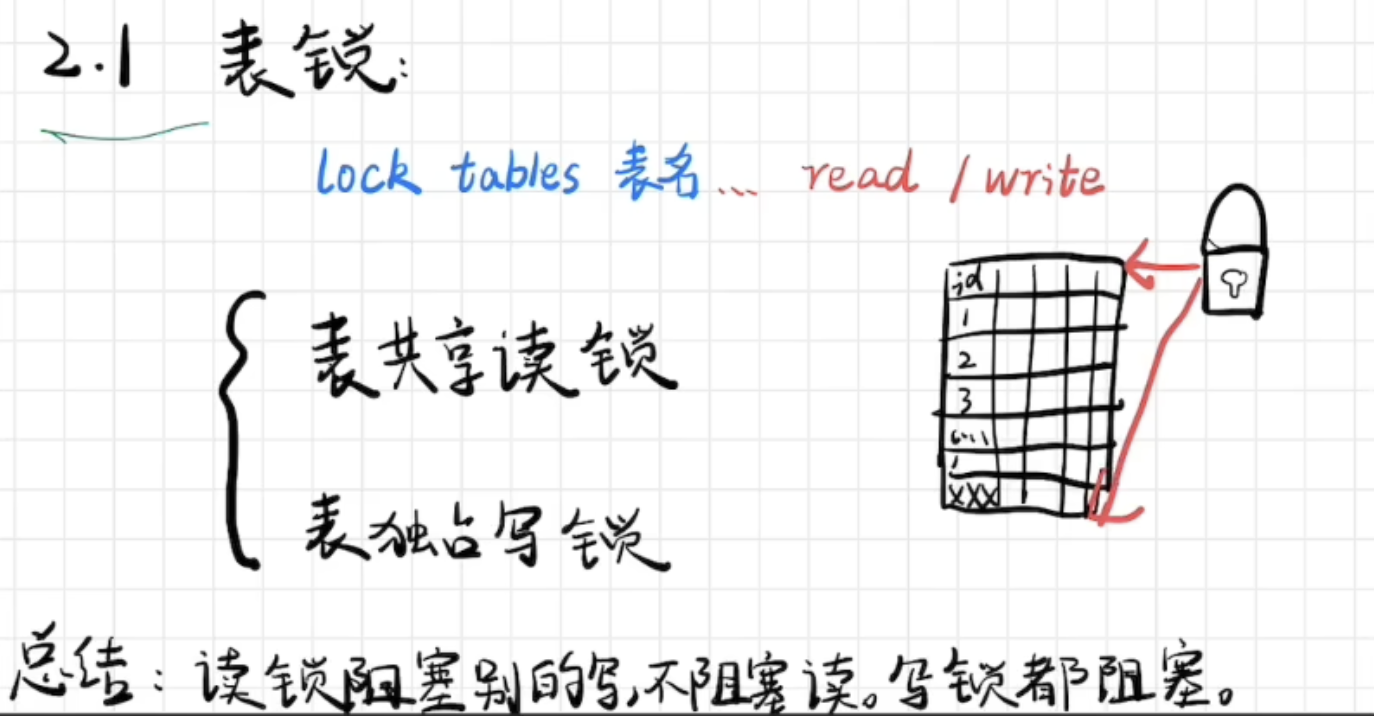 2.1 表锁:
lock tables 表名... read / write
表共享读锁
表独占写锁
id
1
2
3
xxx
总结:读锁阻塞别的写,不阻塞读。写锁都阻塞。